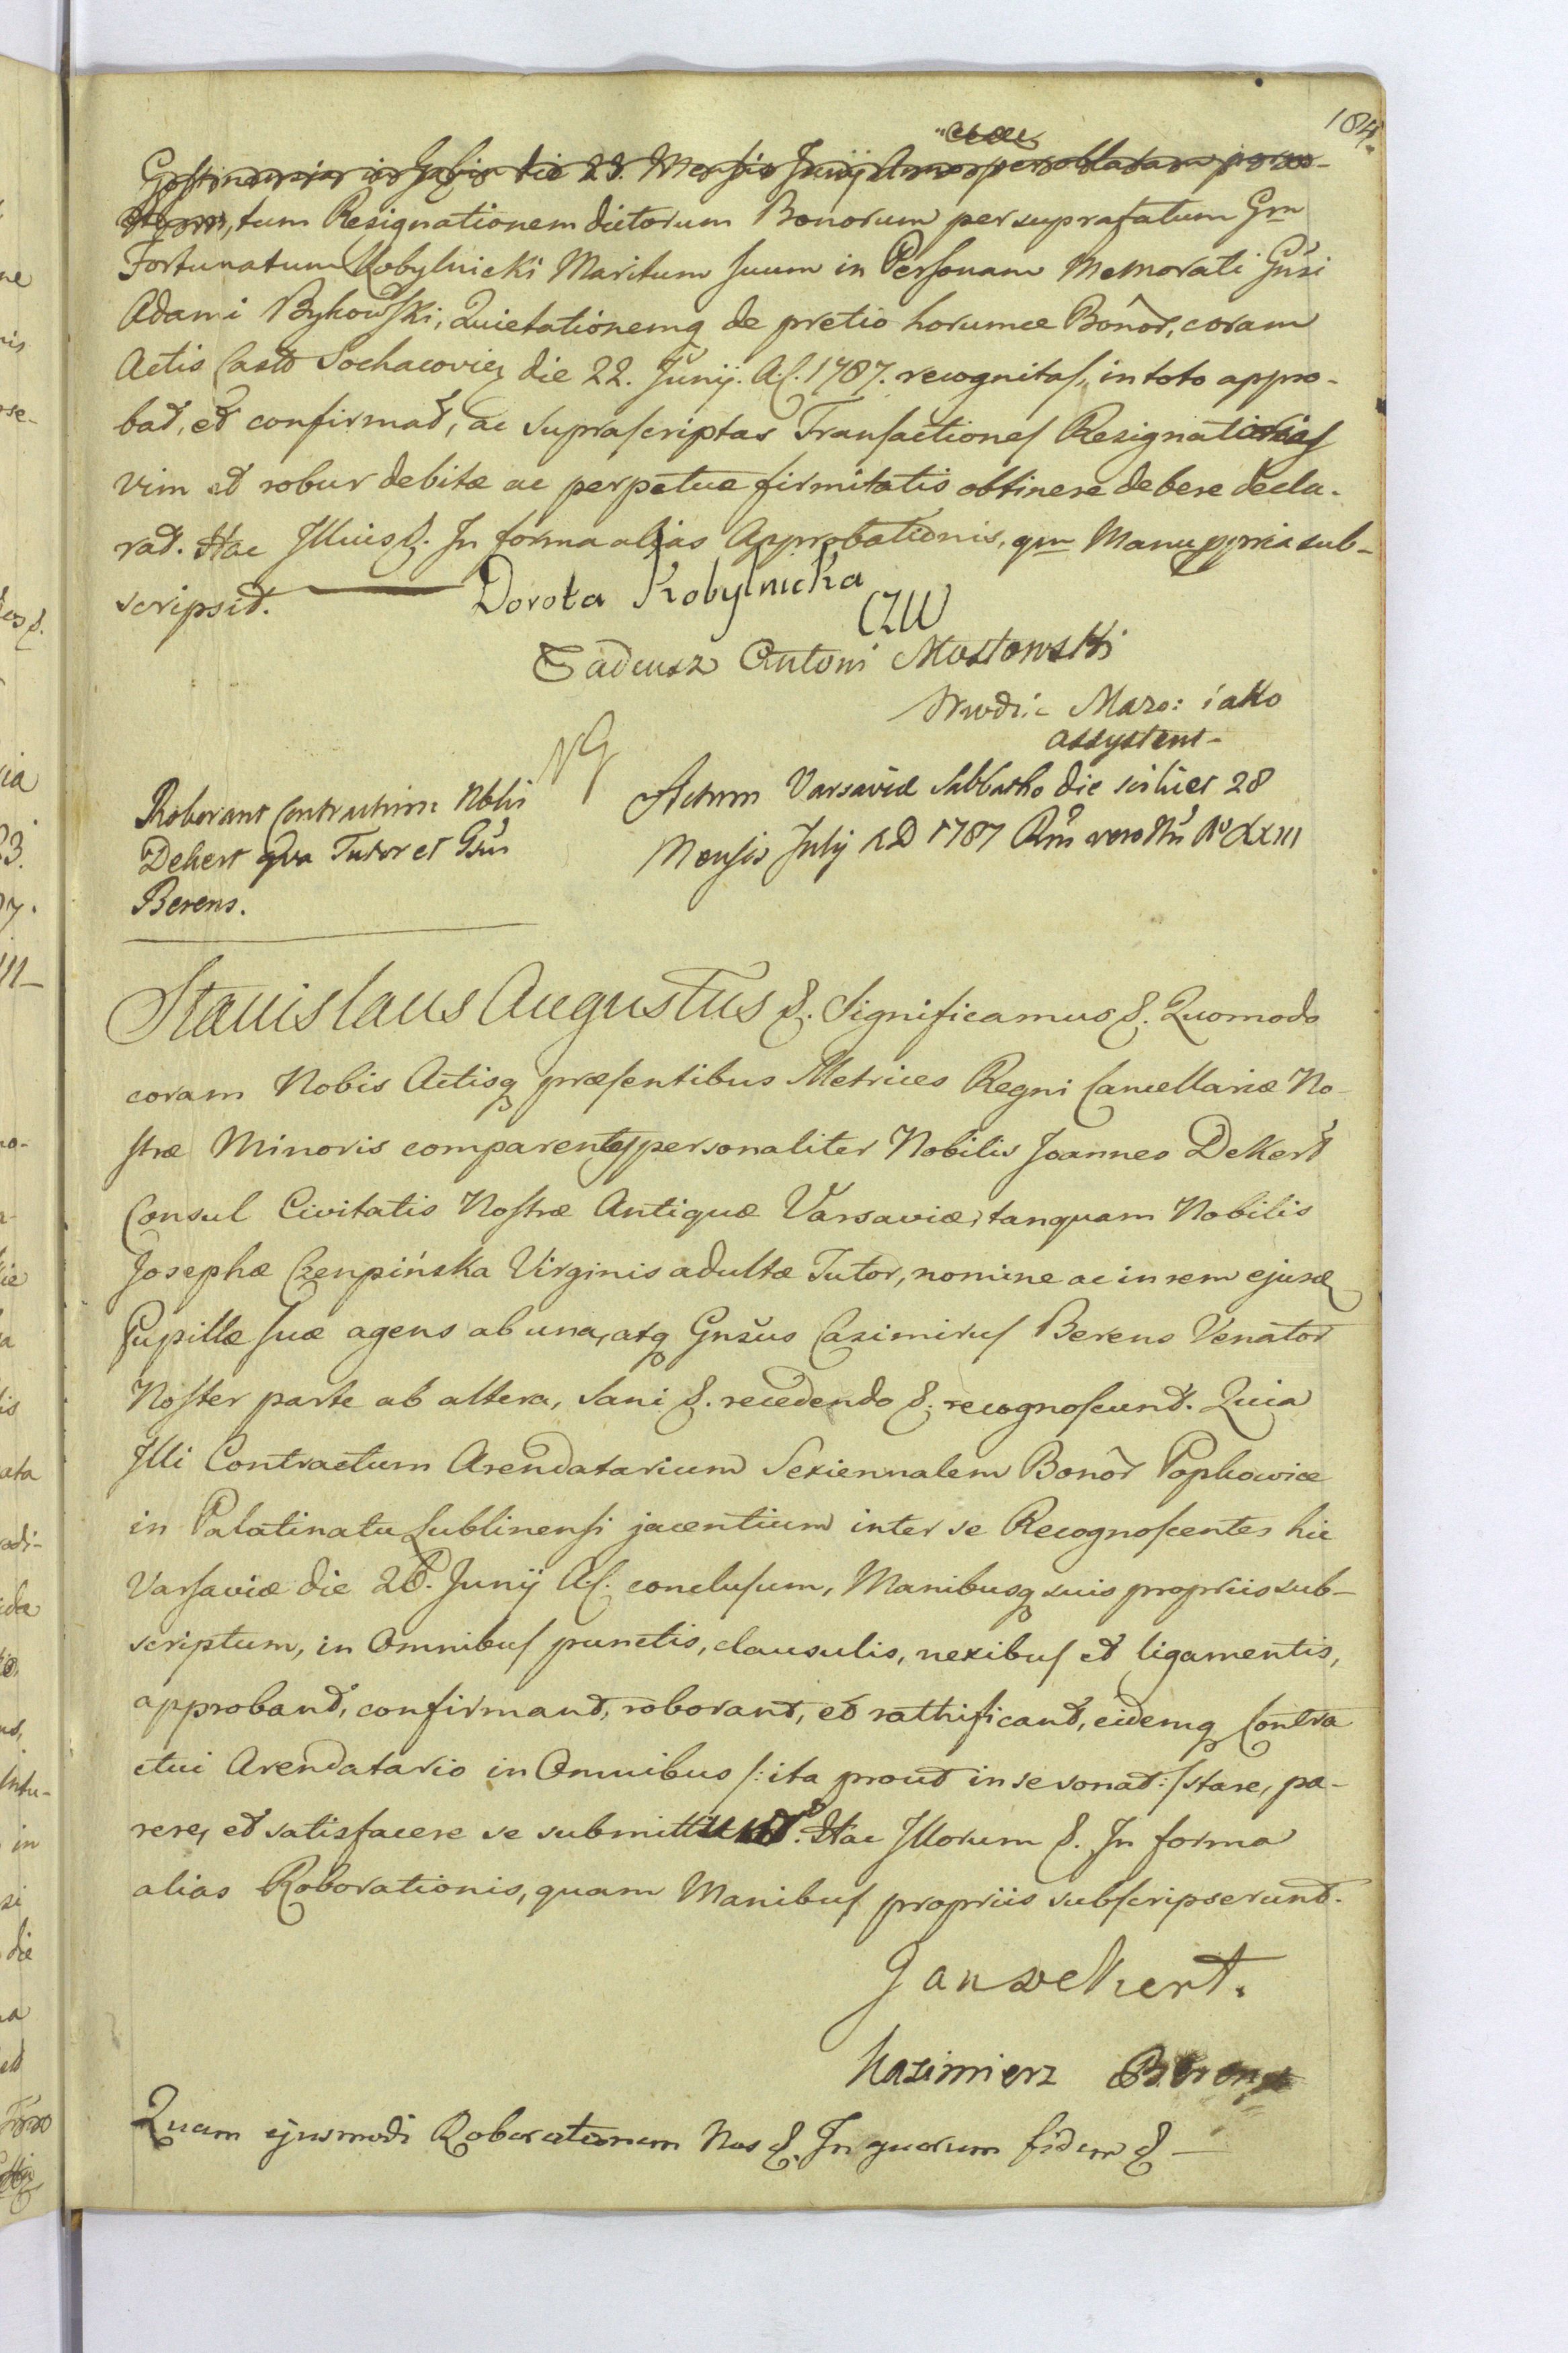 184.
Gostinensia in Gąbin die 23. Mensis Junij Anno per oblatam porre-
ctam, tum Resignationem dictorum Bonorum per suprafatum Gm
Fortunatum Kobylnicki Maritum suum in Personam Memorati Gnsi
Adami Bykowski, Quietationemq de pretio horumce Bonor, coram
Actis Castr Sochacovien die 22. Junij. A. C. 1787. recognitas, in toto appro-
bat, et confirmat, ac suprascriptas Transactiones Resignatorias
vim et robur debitæ ac perpetuæ firmitatis obtinere debere decla-
rat. Hac Illius &. In forma alias Approbationis, qm Manu ppria sub-
scripsit. Dorota Kobylnicka
Tadeusz Antoni Mostowski
Mazo: iako
assystent-
Roborant Contractum Nblis
Dekert qva Tutor et Gsus
Berens.
Actum Varsaviæ Sabbatho die scilicet 28
Mensis July AD 1787 Rni vero Nri Ao XXIII
Stanislaus Augustus &. Significamus &. Quomodo
coram Nobis Actisq præsentibus Metrices Regni Cancellariæ No-
stræ Minoris comparentes personaliter Nobilis Joannes Dekert
Consul Civitatis Nostræ Antiquæ Varsaviæ, tanquam Nobilis
Josephæ Czenpińska Virginis adultæ Tutor, nomine ac in rem ejusd
Pupillæ suæ agens ab una, atq Gnsus Casimirus Berens Venator
Noster parte ab altera, Sani &. recedendo &. recognoscunt. Quia
Illi Contractum Arendatarium Sexiennalem Bonor Popkowice
in Palatinatu Lublinensi jacentium inter se Recognoscentes hic
Varsaviæ die 26. Junij A. C. conclusum, Manibusq suis propriis sub-
scriptum, in Omnibus punctis, clausulis, nexibus et ligamentis,
approbant, confirmant, roborant, et rathificant, eidemq Contra
ctui Arendatario in Omnibus /: ita prout in se sonat :/ stare, pa-
rere, et satisfacere se submittunt. Hac Illorum &. In forma
alias Roborationis, quam Manibus propriis subscripserunt.
Jan Dekert.
Kazimierz Berens
Quam ejusmodi Roborationem Nos &. In quorum fidem & -